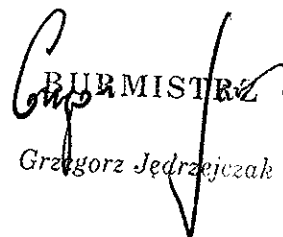 BURMISTRZ
Grzegorz Jędrzejczak